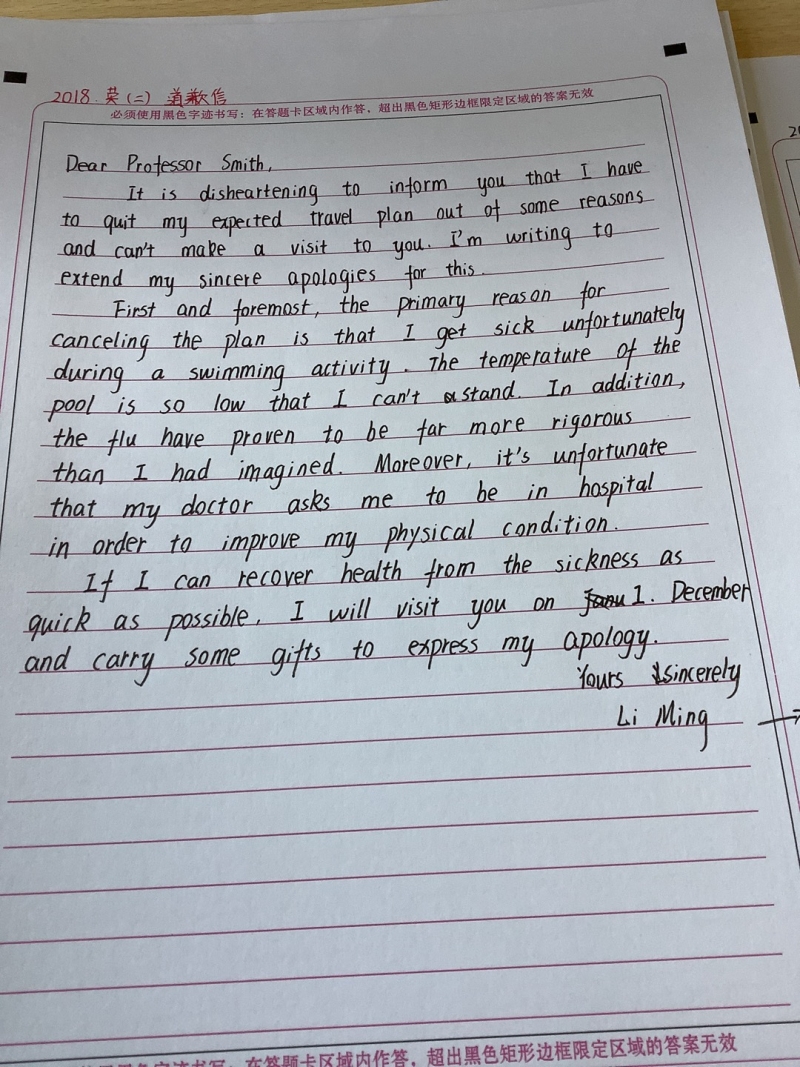 2018 英(二) 道歉信
必须使用黑色字迹书写：在答题卡区域内作答，超出黑色矩形边框限定区域的答案无效
Dear Professor Smith,
It is disheartening to inform you that I have
to quit my expected travel plan out of some reasons
and can't make a visit to you. I'm writing to
extend my sincere apologies for this.
First and foremost, the primary reason for
canceling the plan is that I get sick unfortunately
during a swimming activity. The temperature of the
pool is so low that I can't stand. In addition,
the flu have proven to be far more rigorous
than I had imagined. Moreover, it's unfortunate
that my doctor asks me to be in hospital
in order to improve my physical condition.
If I can recover health from the sickness as
quick as possible, I will visit you on 1. December
and carry some gifts to express my apology.
Yours sincerely
Li Ming
在答题卡区域内作答，超出黑色矩形边框限定区域的答案无效